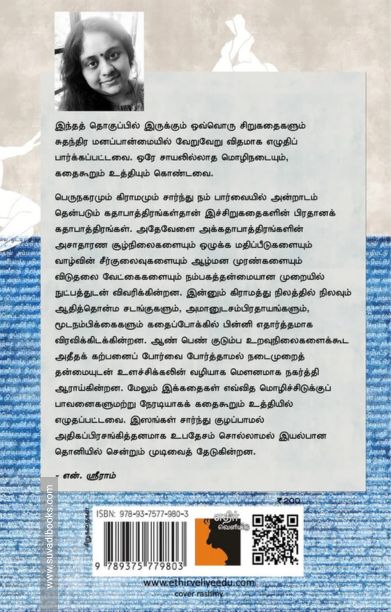 இந்தத் தொகுப்பில் இருக்கும் ஒவ்வொரு சிறுகதைகளும்
சுதந்திர மனப்பான்மையில் வேறுவேறு விதமாக எழுதிப்
பார்க்கப்பட்டவை. ஒரே சாயலில்லாத மொழிநடையும்,
கதைகூறும் உத்தியும் கொண்டவை.
பெருநகரமும் கிராமமும் சார்ந்து நம் பார்வையில் அன்றாடம்
தென்படும் கதாபாத்திரங்கள்தான் இச்சிறுகதைகளின் பிரதானக்
கதாபாத்திரங்கள். அதேவேளை அக்கதாபாத்திரங்களின்
அசாதாரண சூழ்நிலைகளையும் ஒழுக்க மதிப்பீடுகளையும்
வாழ்வின் சீர்குலைவுகளையும் ஆழ்மன முரண்களையும்
விடுதலை வேட்கைகளையும் நம்பகத்தன்மையான முறையில்
நுட்பத்துடன் விவரிக்கின்றன. இன்னும் கிராமத்து நிலத்தில் நிலவும்
ஆதித்தொன்ம சடங்குகளும், அமானுடசம்பிரதாயங்களும்,
மூடநம்பிக்கைகளும் கதைப்போக்கில் பின்னி எதார்த்தமாக
விரவிக்கிடக்கின்றன. ஆண் பெண் குடும்ப உறவுநிலைகளைக்கூட
அதீதக் கற்பனைப் போர்வை போர்த்தாமல் நடைமுறைத்
தன்மையுடன் உளச்சிக்கலின் வழியாக மௌனமாக நகர்த்தி
ஆராய்கின்றன. மேலும் இக்கதைகள் எவ்வித மொழிச்சிடுக்குப்
பாவனைகளுமற்று நேரடியாகக் கதைகூறும் உத்தியில்
எழுதப்பட்டவை. இஸங்கள் சார்ந்து குழப்பாமல்
அதிகப்பிரசங்கித்தனமாக உபதேசம் சொல்லாமல் இயல்பான
தொனியில் சென்றும் முடிவைத் தேடுகின்றன.
- என். ஸ்ரீராம்
₹200
சிறுகதைகள்
ISBN: 978-93-7577-980-3
9 789375 779803
எதிர்
வெளியீடு
www.ethirveliyeedu.com
cover rashmy
www.suvadibooks.com